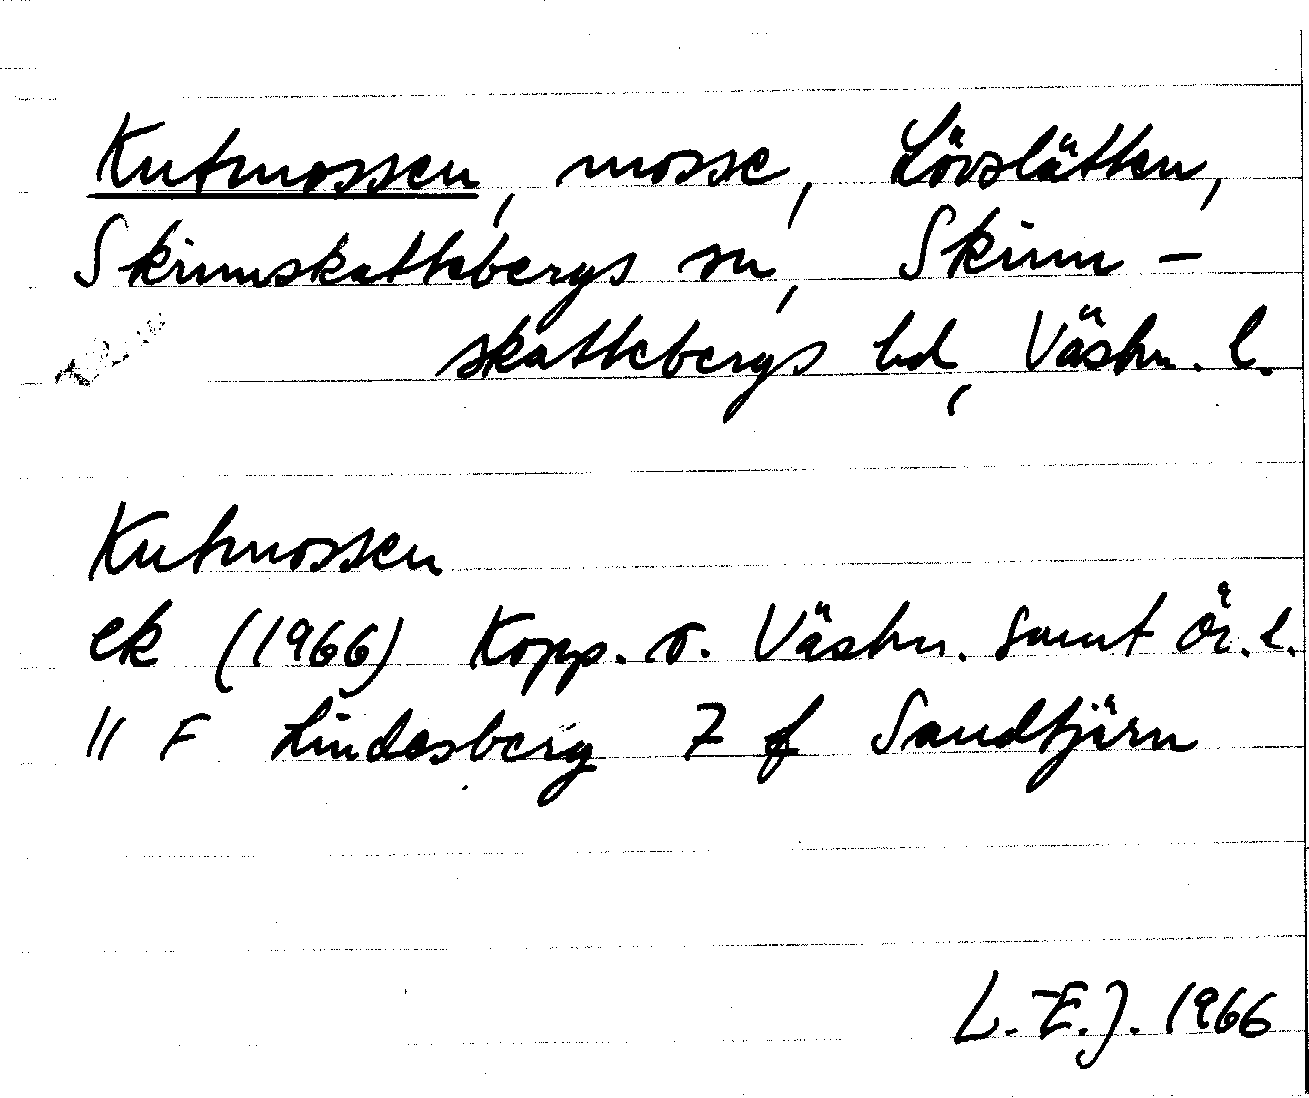 Kutmossen, mosse, Lövslätten,
Skinnskattebergs sn, Skinn-
skattebergs hd, Västm. l.
Kutmossen
ek (1966) Kopp. o. Västm. samt Ör. l.
11 F Lindesberg 7 f Sandtjärn
L.-E.J. 1966